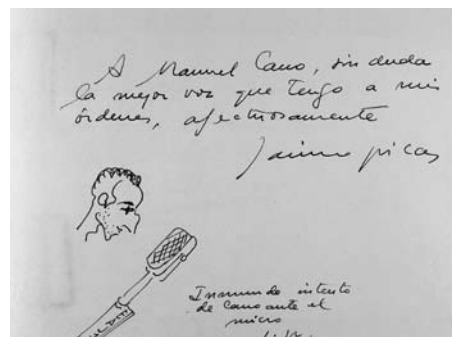 A Manuel Cano, sin duda
la mejor voz que tengo a mis
órdenes, afectuosamente
Jaime picas
Inmundo intento
de Cano ante el
micro